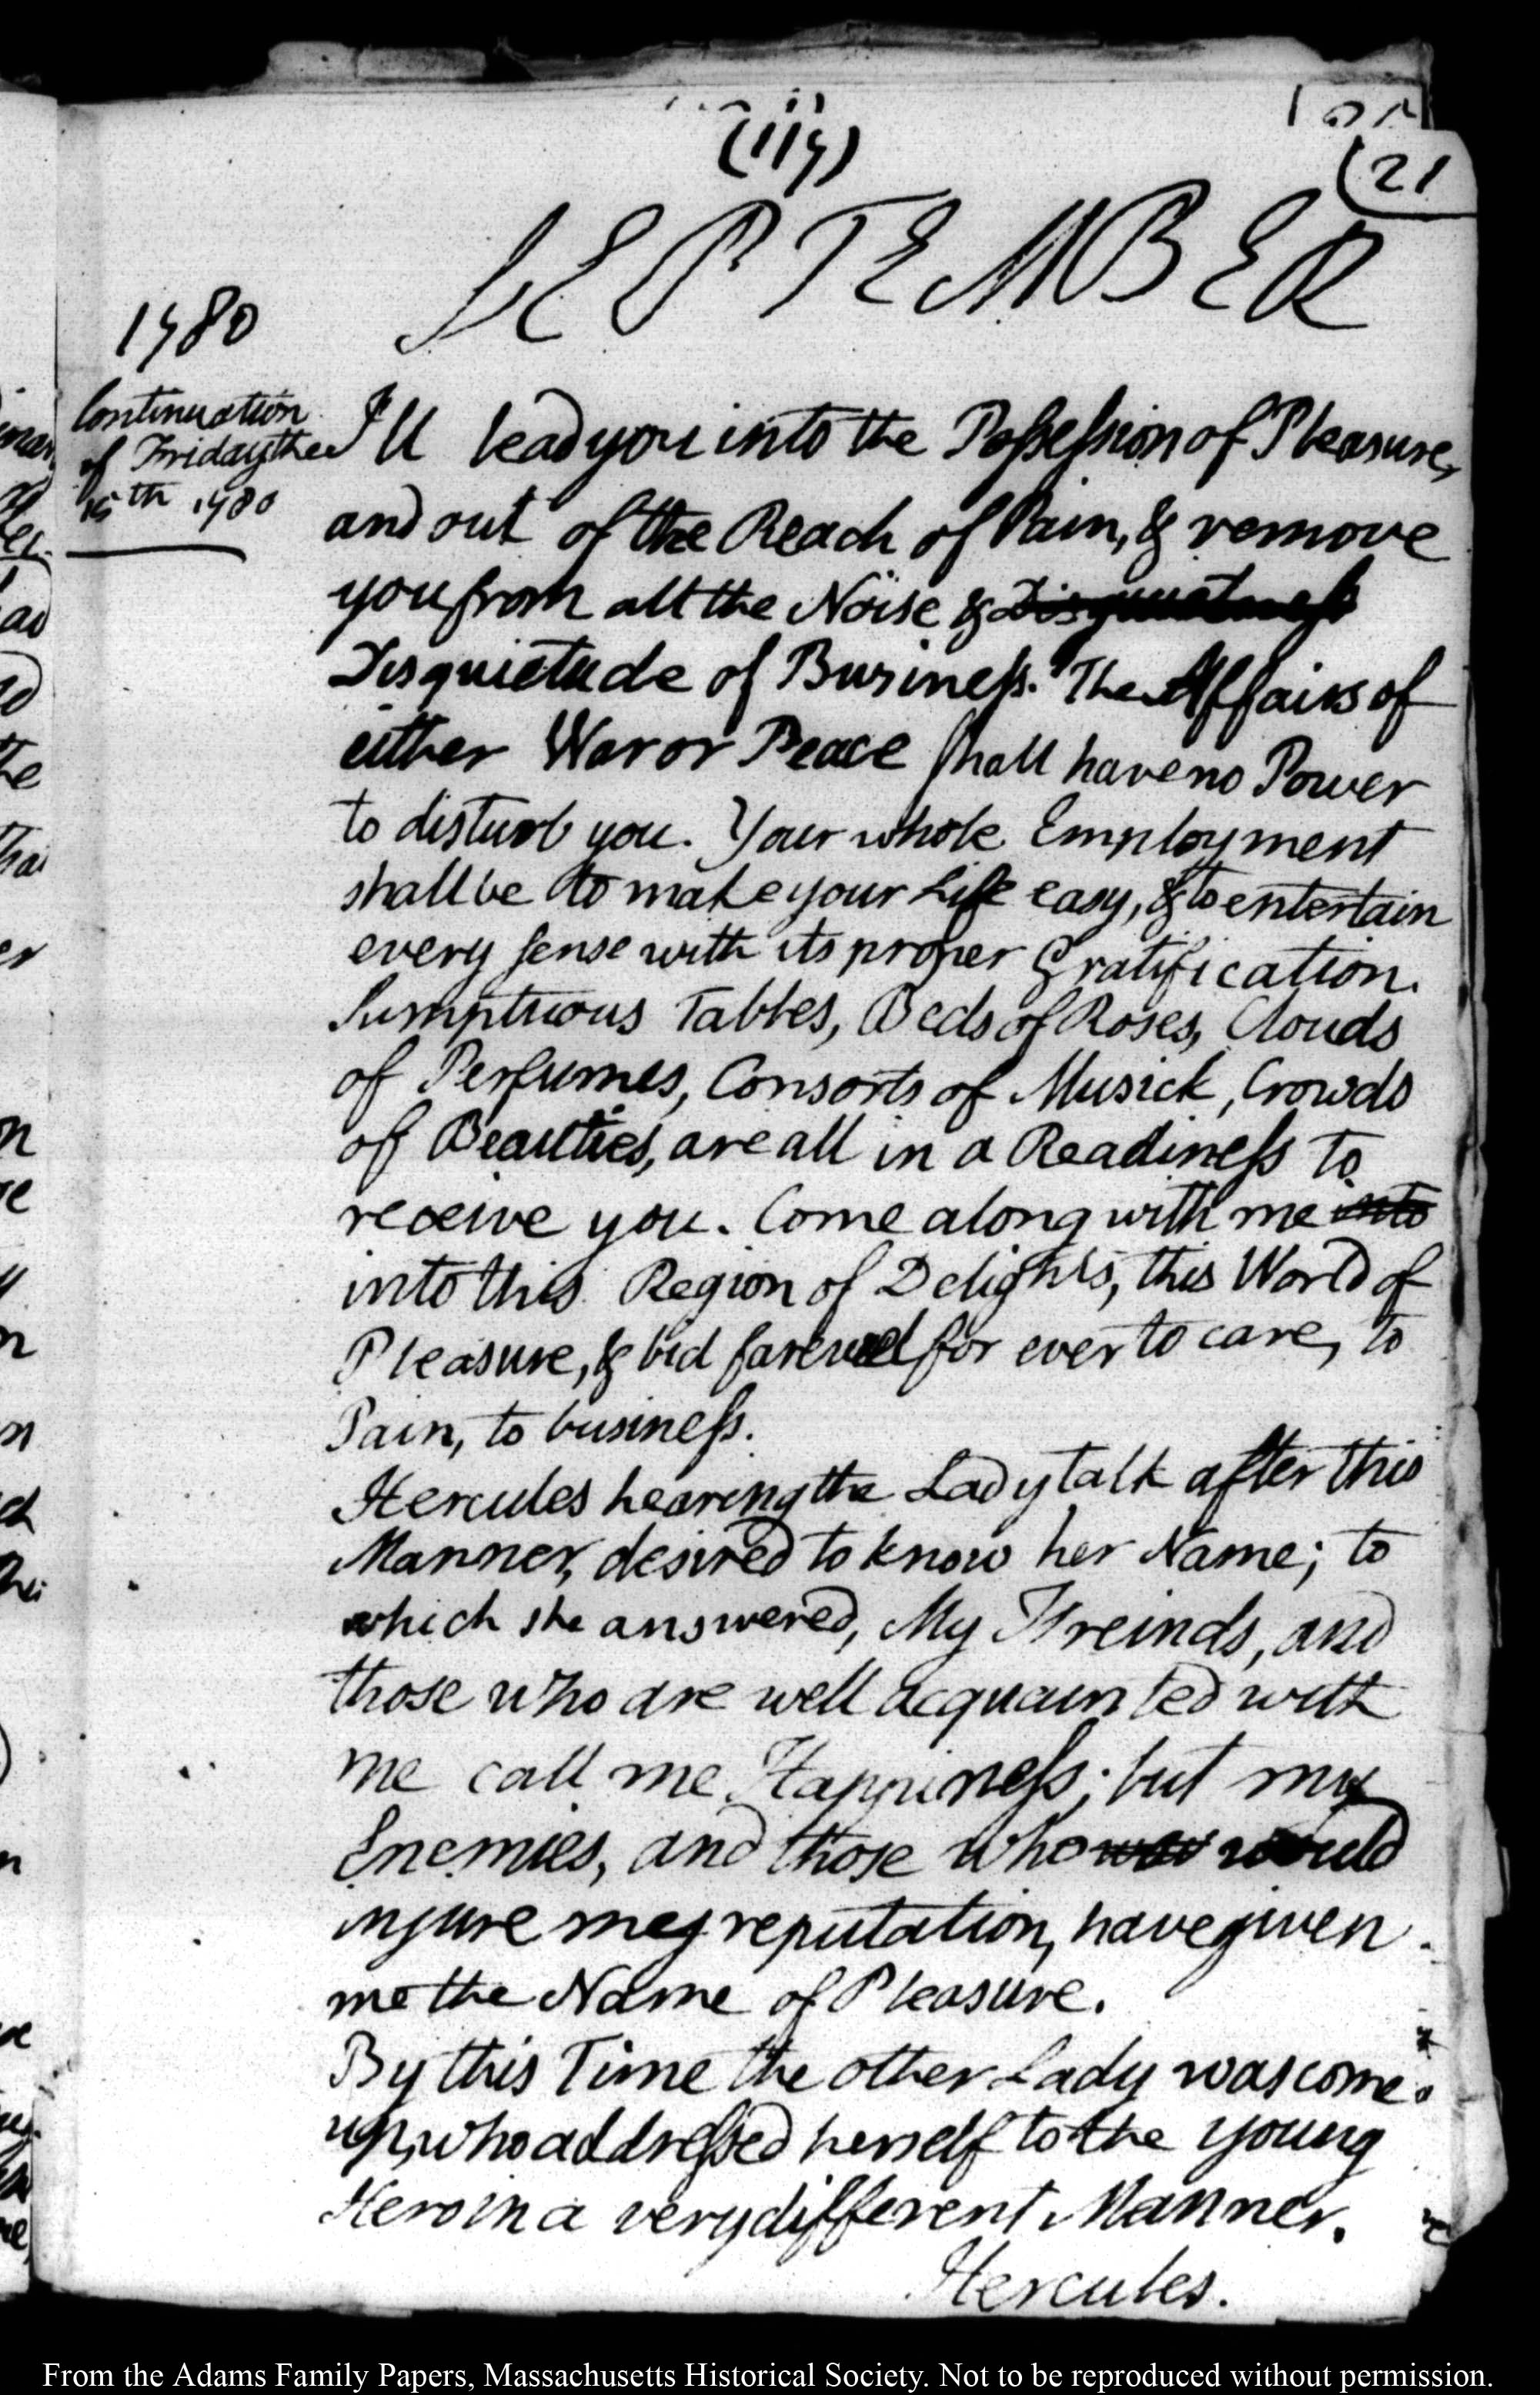 (117)
(21
SEPTEMBER
1780
Continuation
of Friday the
15th 1780
I'll lead you into the Possession of Pleasure,
and out of the Reach of Pain, & remove
you from all the Noise & Disquietness
Disquietude of Business. The Affairs of
either War or Peace shall have no Power
to disturb you. Your whole Employment
shall be to make your Life easy, & to entertain
every sense with its proper Gratification.
Sumptuous Tables, Beds of Roses, Clouds
of Perfumes, Consorts of Musick, Crowds
of Beauties, are all in a Readiness to
receive you. Come along with me into
into this Region of Delights, this World of
Pleasure, & bid farewel for ever to care, to
Pain, to business.
Hercules hearing the Lady talk after this
Manner, desired to know her Name; to
which she answered, My Freinds, and
those who are well acquainted with
me call me Happiness; but my
Enemies, and those who would
injure my reputation, have given
me the Name of Pleasure.
By this Time the other Lady was come
up, who addressed herself to the young
Hero in a very different Manner.
Hercules.
From the Adams Family Papers, Massachusetts Historical Society. Not to be reproduced without permission.